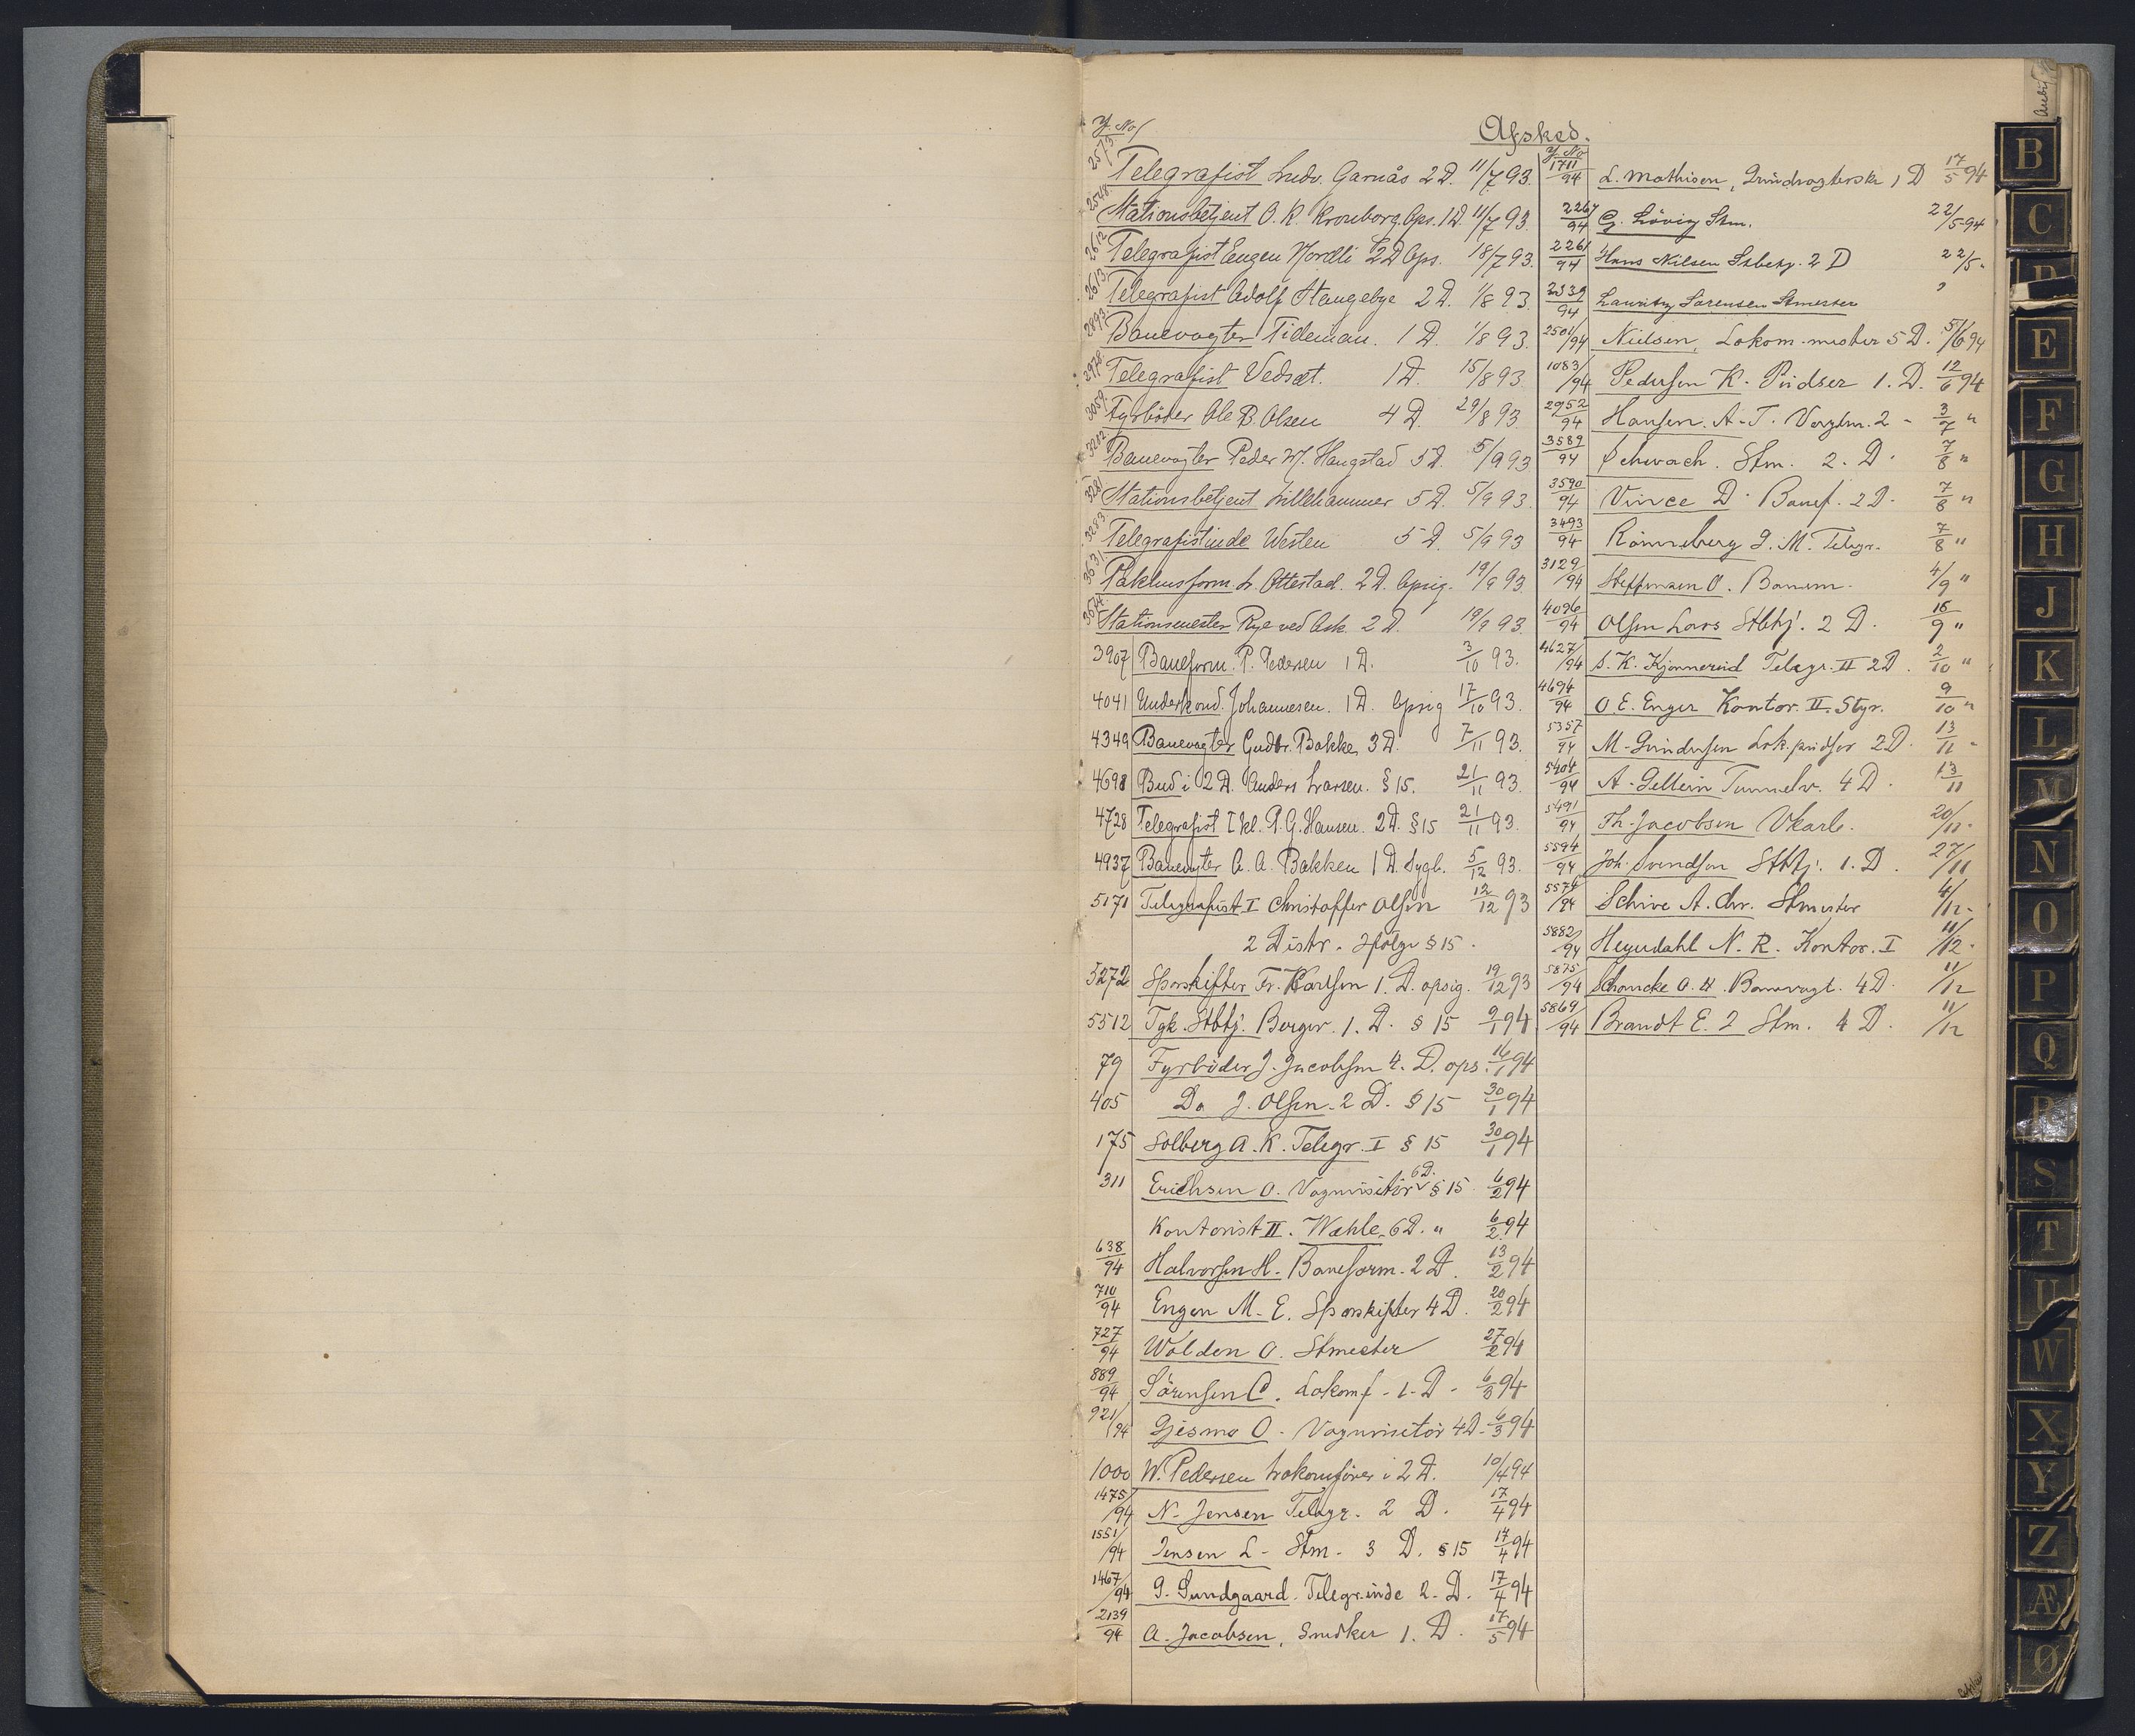 Afsked.
J. No
2573 Telegrafist Ludv. Garnås 2 D. 11/7 93.
2548 Stationsbetjent O. K. Kronborg Ops. 1 D. 11/7 93.
2612 Telegrafist Eugen Nordli 2 D Ops. 18/7 93.
2613 Telegrafist Adolf Haugebye 2 D. 1/8 93
2893 Banevogter Tideman. 1 D. 1/8 93.
2978 Telegrafist Vedsæt. 1 D. 15/8 93.
3059 Fyrböder Ole B. Olsen 4 D. 29/8 93.
3202 Banevogter Peder M. Haugstad 5 D. 5/9 93
3281 Stationsbetjent Lillehammer 5 D. 5/9 93.
3283 Telegrafistinde Westen 5 D. 5/9 93
3631 Pakhusform. L. Ottestad. 2 D. Opsig. 19/9 93.
Stationsmester Rye ved Ask. 2 D. 19/9 93.
3907 Baneform. P. Pedersen 1 D. 3/10 93.
4041 Underkond. Johannesen. 1 D. Opsig 17/10 93.
4349 Banevogter Gudbr. Bakke, 3 D. 7/11 93.
4698 Bud i 2 D. Anders Larsen. § 15. 21/11 93.
4728 Telegrafist I kl. P. G. Hansen. 2 D. § 15 21/11 93.
4937 Banevogter A. A. Bakken 1 D. Sygb. 5/12 93.
5171 Telegrafist I Christoffer Olsen 12/12 93
2 Distr. Ifölge § 15.
5272 Sporskifter Fr. Karlsen 1. D. opsig. 19/12 93
5512 Tgk. Stbtj. Berger. 1. D. § 15 9/1 94
79 Fyrböder J. Jacobsen 4. D. ops. 16/1 94
405 Do J. Olsen. 2 D. § 15 30/1 94
175 Solberg A. K. Telegr. I § 15 30/1 94
311 Erichsen O. Vognvisitör 6 D. § 15 6/2 94
Kontorist II. Wahle, 6 D. " 6/2 94
638/94 Halvorsen H. Baneform. 2 D. 13/2 94
710/94 Engen M. E. Sporskifter 4 D. 20/2 94
727/94 Wolden O. Stmester 27/2 94
889/94 Sörensen C. Lokomf. 1. D. 6/3 94
921/94 Gjesmo O. Vognvisitör 4 D. 6/3 94
1000 W. Pedersen Lokomförer i 2 D. 10/4 94
1475/94 N. Jensen Telegr. 2 D. 17/4 94
1551/94 Jensen L. Stm. 3 D. § 15 17/4 94
1467/94 G. Sundgaard. Telegr.inde 2. D. 17/4 94
2139/94 A. Jacobsen, Snedker 1. D. 17/5 94
J. No
1711/94 L. Mathisen, 1 D 17/5 94
2267/94 G. Lövig Stm. 22/5 94
2261/94 Hans Nilsen Stbetj. 2 D 22/5 "
2339/94 Lauritz Sørensen Stmester "
2501/94 Nielsen, Lokom. mester 5 D. 5/6 94
1083/94 Pedersen K. Pudser 1. D. 12/6 94
2952/94 Hansen. A. T. Vogtm. 2 - 3/7 "
3589/94 Schwach. Stm. 2. D. 7/8 "
3590/94 Vince D. Banef. 2 D. 7/8 "
3493/94 Rönneberg J. M. Telegr. 7/8 "
3129/94 Steffensen O. Banem. 4/9 "
4096/94 Olsen Lars Stbtj. 2 D. 18/9 "
4627/94 S. K. Kjonnerud Telegr. II 2 D. 2/10 "
4694/94 O. E. Enger Kontor. II. Styr. 9/10 "
5357/94 M. Gundersen Lok. pudser 2 D. 13/11 "
5404/94 A. Gellein Tunnelv. 4 D. 13/11
5491/94 Th. Jacobsen Vkarl. 20/11 "
5594/94 Joh. Svendsen Stbtj. 1. D. 27/11
5574/94 Schive A. Chr. Stmester 4/12 "
5882/94 Heyerdahl N. R. Kontor. I 11/12 "
5875/94 Schancke O. H. Banevogt. 4 D. 11/12
5869/94 Brandt E. J Stm. 4 D. 11/12
B
C
D
E
F
G
H
J
K
L
M
N
O
P
Q
R
S
T
U
W
X
Y
Z
Æ
Ø